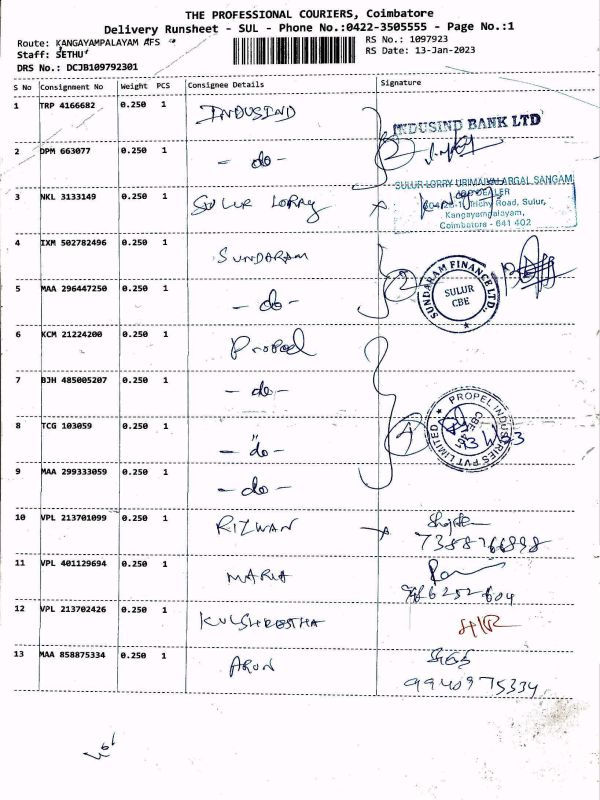 THE PROFESSIONAL COURIERS, Coimbatore
Delivery Runsheet - SUL - Phone No.:0422-3505555 - Page No.:1
Route: KANGAYAMPALAYAM AFS RS No.: 1097923
Staff: SETHU RS Date: 13-Jan-2023
DRS No.: DCJB109792301
S No Consignment No Weight PCS Consignee Details Signature
1 TRP 4166682 0.250 1 INDUSIND
INDUSIND BANK LTD
2 DPM 663077 0.250 1 - do - 2
3 NKL 3133149 0.250 1 SULUR LORRY
SULUR LORRY URIMAIYALARGAL SANGAM
DEALER
Trichy Road, Sulur,
Kangayampalayam,
Coimbatore - 641 402
4 IXM 502782496 0.250 1 SUNDARAM
SUNDARAM FINANCE LTD.,
SULUR
CBE
5 MAA 296447250 0.250 1 - do - 2
6 KCM 21224200 0.250 1 Propel
7 BJH 485005207 0.250 1 - do -
PROPEL INDUSTRIES PVT LIMITED
8 TCG 103059 0.250 1 - do - 4
9 MAA 299333059 0.250 1 - do -
10 VPL 213701099 0.250 1 RIZWAN
11 VPL 401129694 0.250 1 MARIA
12 VPL 213702426 0.250 1 KULSHRESTHA
13 MAA 858875334 0.250 1 ARUN
9940975334